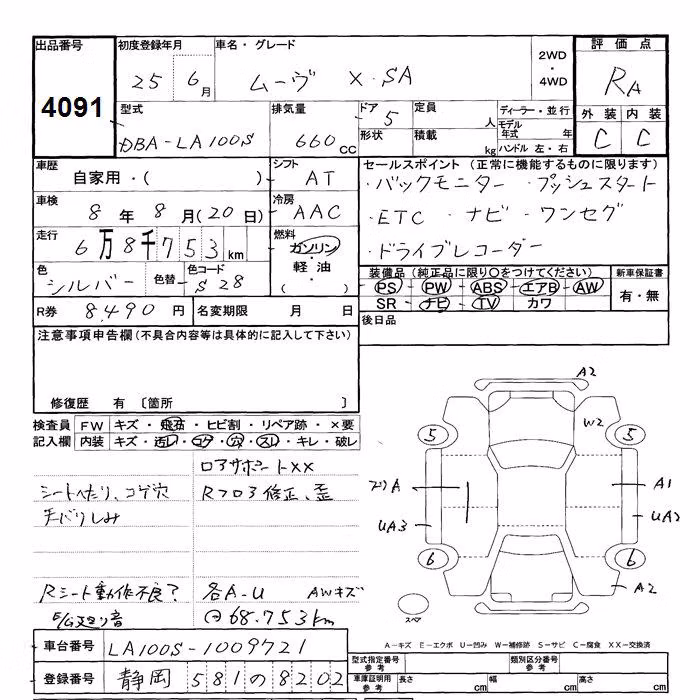 出品番号
4091
初度登録年月
25 6月
車名・グレード
ムーヴ X・SA
2WD
・
4WD
評価点
RA
型式
DBA-LA100S
排気量
660cc
ドア 5
定員 人
形状
積載 kg
ディーラー・並行
モデル年式 年
ハンドル 左・右
外装 内装
C C
車歴
自家用・( )
シフト
AT
車検
8年 8月(20日)
冷房
AAC
走行
6万8千753km
燃料
ガソリン
・
軽油
・
( )
色
シルバー
色替
色コード
S28
R券 8490円
名変期限 月 日
セールスポイント(正常に機能するものに限ります)
・バックモニター ・プッシュスタート
・ETC ・ナビ・ワンセグ
・ドライブレコーダー
装備品(純正品に限り○をつけてください)
PS・PW・ABS・エアB・AW
SR・ナビ・TV・カワ
新車保証書
有・無
後日品
注意事項申告欄(不具合内容等は具体的に記入して下さい)
修復歴 有 〔箇所 〕
検査員記入欄
FW キズ・飛石・ヒビ割・リペア跡・×要
内装 キズ・汚レ・コゲ・穴・スレ・キレ・破レ
ロアサポートXX
シートへたり、コゲ穴
Rフロア修正、歪
天バリしみ
Rシート動作不良?
各A-U AWキズ
68.753km
A2
W2
5
5
A
A1
UA3
UA2
6
6
A2
スペア
A-キズ E-エクボ U-凹み W-補修跡 S-サビ C-腐食 XX-交換済
車台番号
LA100S-1009721
登録番号
静岡 581の8202
型式指定番号 参考
類別区分番号 参考
車庫証明用 参考
長さ cm
幅 cm
高さ cm